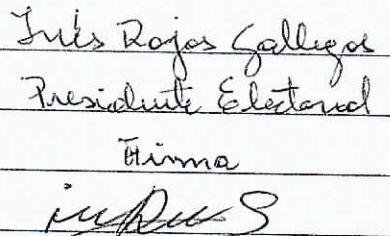 Inés Rojas Gallegos
Presidente Electoral
Firma